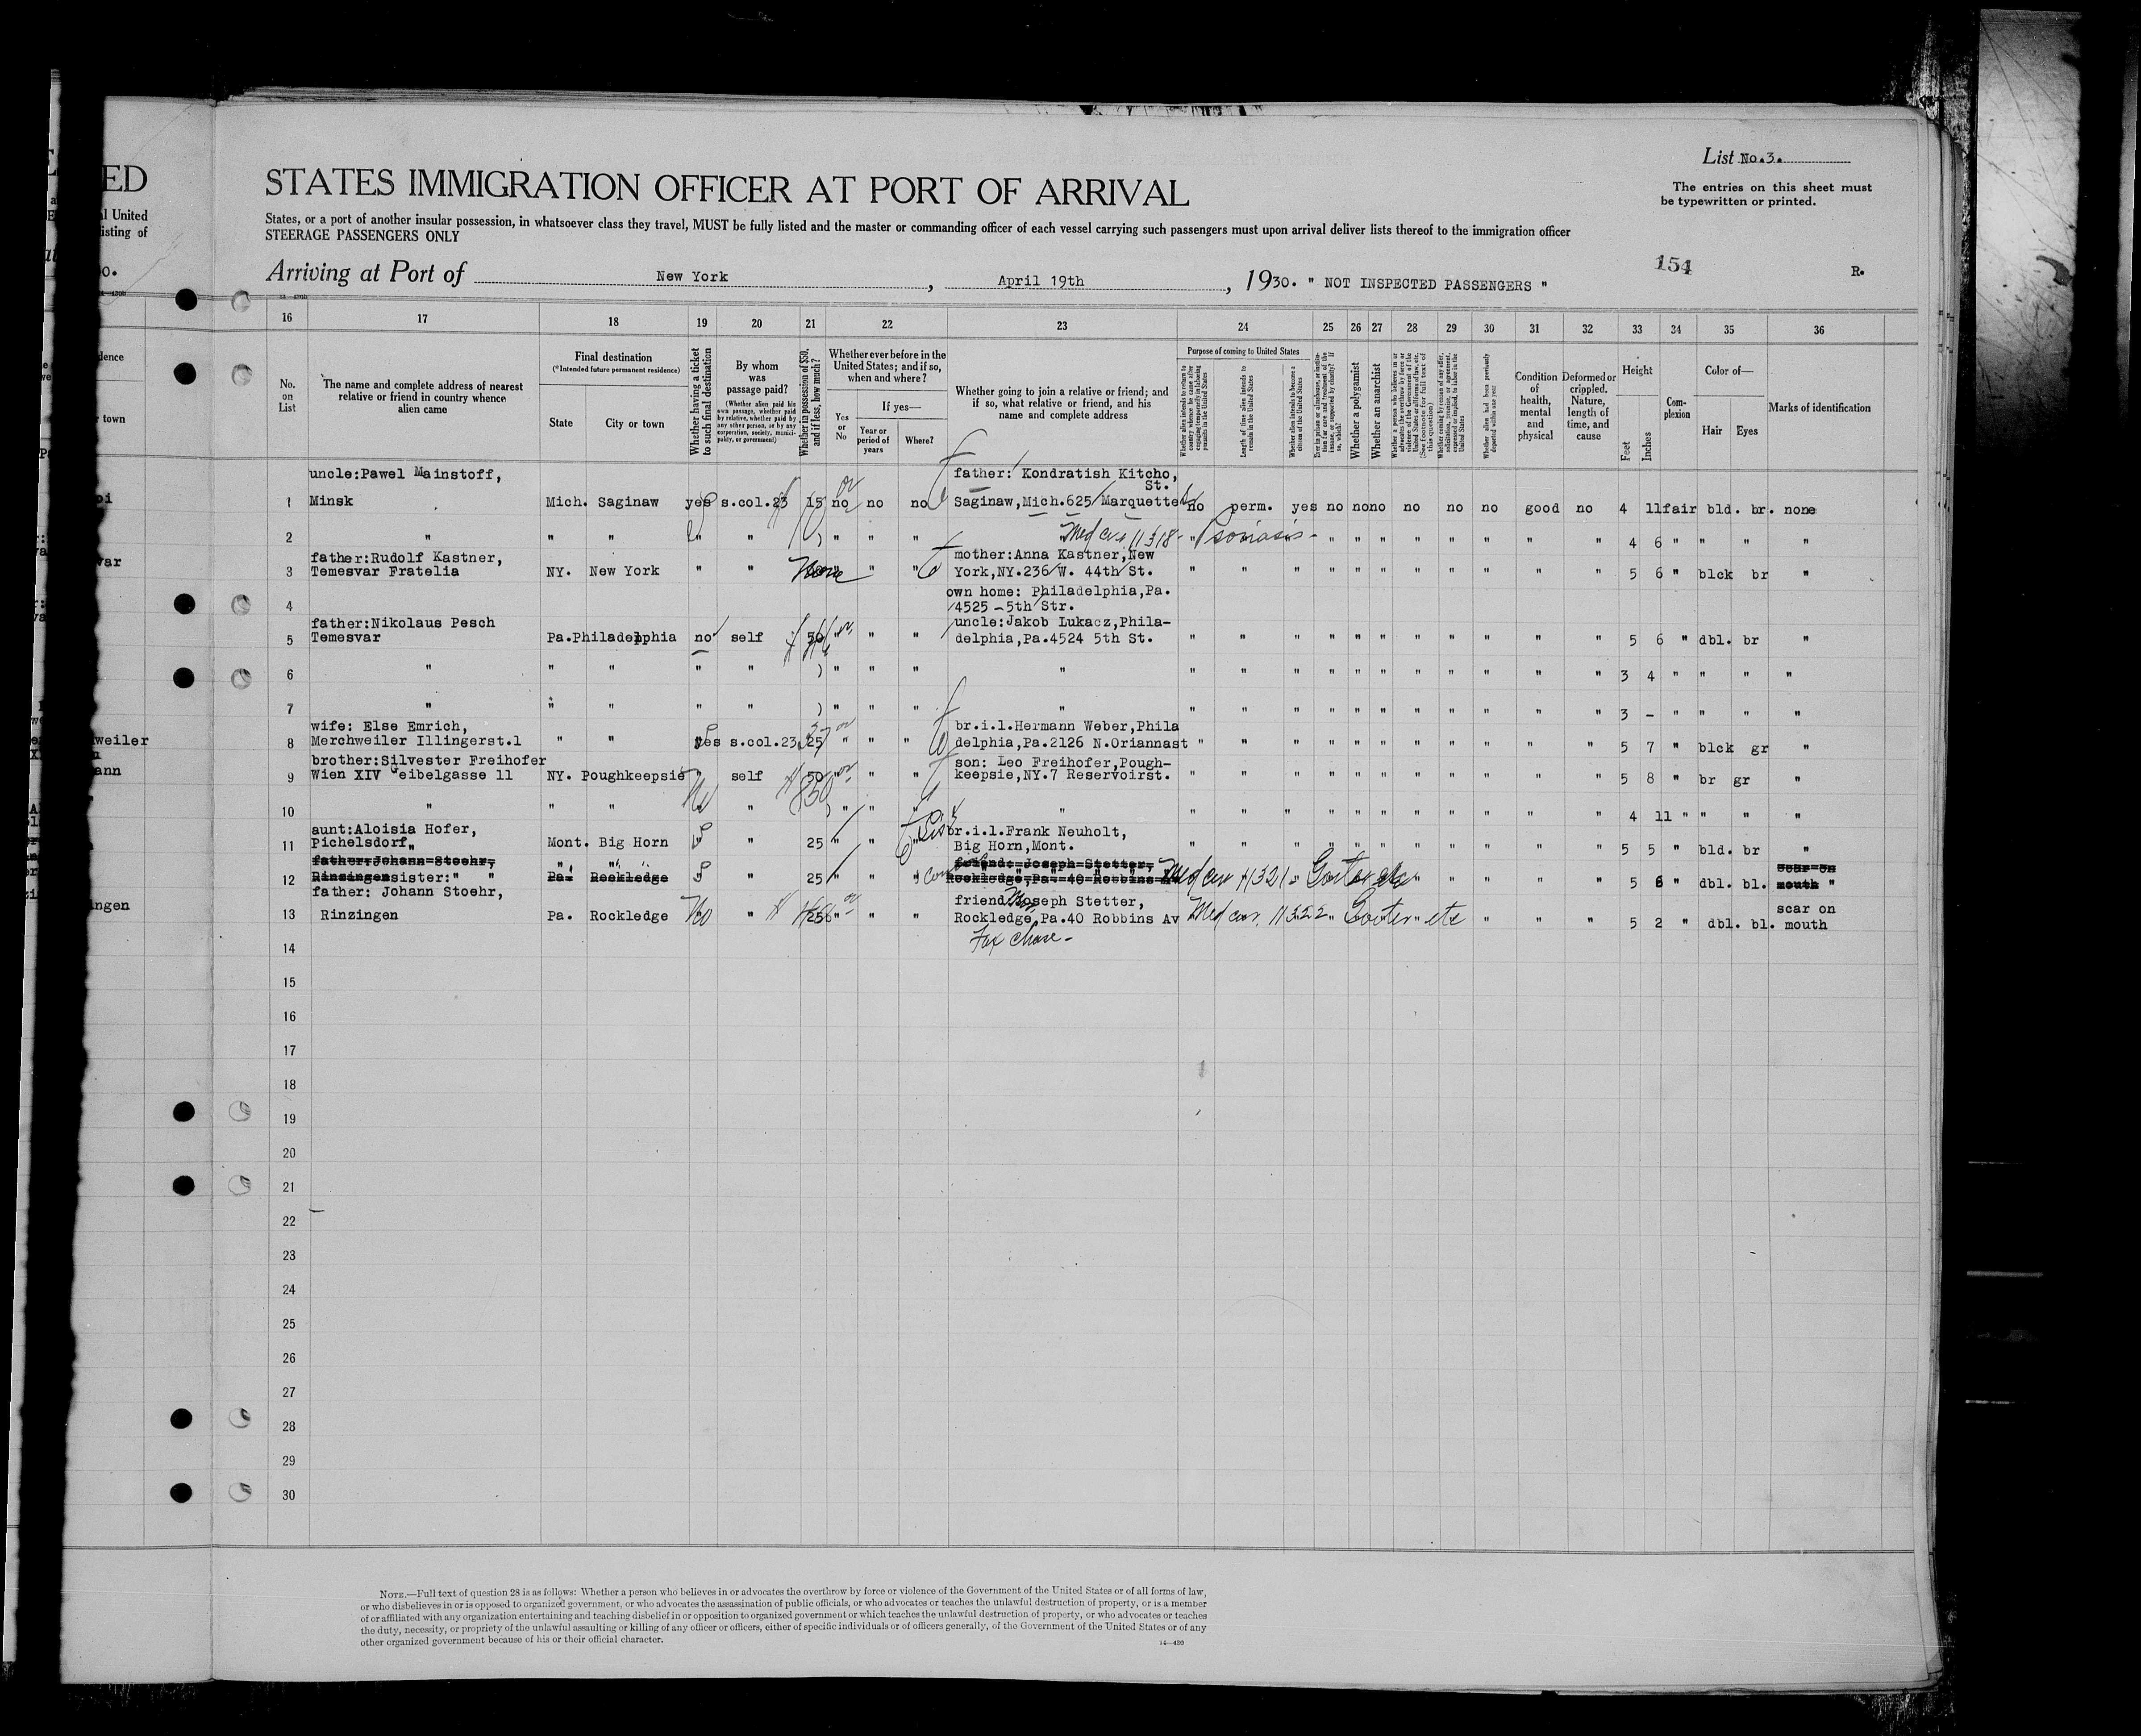 ED
al United
isting of
List No.3.
STATES IMMIGRATION OFFICER AT PORT OF ARRIVAL
The entries on this sheet must
be typewritten or printed.
States, or a port of another insular possession, in whatsoever class they travel, MUST be fully listed and the master or commanding officer of each vessel carrying such passengers must upon arrival deliver lists thereof to the immigration officer
STEERAGE PASSENGERS ONLY
154
R.
Arriving at Port of New York, April 19th, 1930. " NOT INSPECTED PASSENGERS "
16 17 18 19 20 21 22 23 24 25 26 27 28 29 30 31 32 33 34 35 36
No. on List
The name and complete address of nearest relative or friend in country whence alien came
Final destination
(*Intended future permanent residence)
State
City or town
Whether having a ticket to such final destination
By whom was passage paid?
(Whether alien paid his own passage, whether paid by relative, whether paid by any other person, or by any corporation, society, municipality, or government)
Whether in possession of $50, and if less, how much?
Whether ever before in the United States; and if so, when and where?
Yes or No
If yes—
Year or period of years
Where?
Whether going to join a relative or friend; and if so, what relative or friend, and his name and complete address
Purpose of coming to United States
Length of time alien intends to remain in the United States
Whether alien intends to become a citizen of the United States
Whether a polygamist
Whether an anarchist
Condition of health, mental and physical
Deformed or crippled. Nature, length of time, and cause
Height
Feet
Inches
Complexion
Color of—
Hair
Eyes
Marks of identification
uncle:Pawel Mainstoff, father: Kondratish Kitcho,
St.
1 Minsk Mich. Saginaw yes s.col.23 15 no no no Saginaw,Mich.625 Marquette no perm. yes no no no no no no good no 4 11 fair bld. br. none
2 " " " " " " " " Med cer 11318 - " Psoriasis - " " " " " " " " 4 6 " " " "
father:Rudolf Kastner, mother:Anna Kastner,New
3 Temesvar Fratelia NY. New York " " None " " " York,NY.236 W. 44th St. " " " " " " " " " " " 5 6 " blck br "
own home: Philadelphia,Pa.
4 4525 - 5th Str.
father:Nikolaus Pesch uncle:Jakob Lukacz,Phila-
5 Temesvar Pa. Philadelphia no self 50 " " " delphia,Pa.4524 5th St. " " " " " " " " " " " 5 6 " dbl. br "
6 " " " " " ) " " " " " " " " " " " " " " " " 3 4 " " " "
7 " " " " " ) " " " " " " " " " " " " " " " 3 - " " " "
wife: Else Emrich, br.i.l.Hermann Weber,Phila
8 Merchweiler Illingerst.1 " " yes s.col.23 25 " " " delphia,Pa.2126 N.Oriannast " " " " " " " " " " " 5 7 " blck gr "
brother:Silvester Freihofer son: Leo Freihofer,Pough-
9 Wien XIV Geibelgasse 11 NY. Poughkeepsie " self 50 " " " keepsie,NY.7 Reservoirst. " " " " " " " " " " " 5 8 " br gr "
10 " " " " " " " " " " " " " " " " " " " 4 11 " " " "
aunt:Aloisia Hofer, br.i.l.Frank Neuholt,
11 Pichelsdorf Mont. Big Horn " 25 " " " Big Horn,Mont. " " " " " " " " " " " 5 5 " bld. br "
father:Johann Stoehr, " " friend: Joseph Stetter, scar on
12 Rinzingen sister:" " Pa. Rockledge " 25 " " Rockledge,Pa. 40 Robbins Med cer 11321 - Goiter etc " " " " " 5 6 " dbl. bl. mouth "
father: Johann Stoehr, friend Joseph Stetter, scar on
13 Rinzingen Pa. Rockledge No " 25 " " " Rockledge,Pa.40 Robbins Av Med cer. 11322 " Goiter " etc " " " 5 2 " dbl. bl. mouth
Fox Chase -
14
15
16
17
18
19
20
21
22
23
24
25
26
27
28
29
30
NOTE.—Full text of question 28 is as follows: Whether a person who believes in or advocates the overthrow by force or violence of the Government of the United States or of all forms of law,
or who disbelieves in or is opposed to organized government, or who advocates the assassination of public officials, or who advocates or teaches the unlawful destruction of property, or is a member
of or affiliated with any organization entertaining and teaching disbelief in or opposition to organized government or which teaches the unlawful destruction of property, or who advocates or teaches
the duty, necessity, or propriety of the unlawful assaulting or killing of any officer or officers, either of specific individuals or of officers generally, of the Government of the United States or of any
other organized government because of his or their official character.
14—430